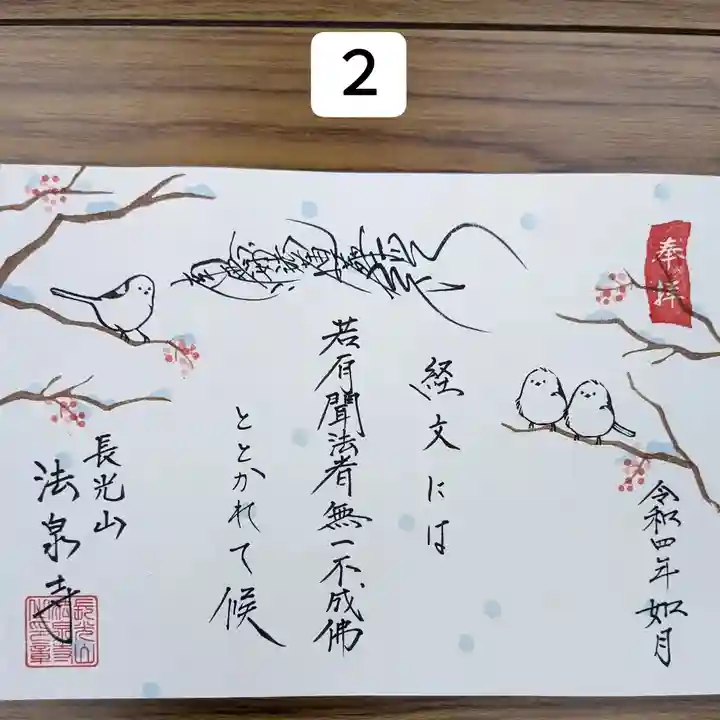 2
奉拝
令和四年如月
経文には
若有聞法者無一不成佛
ととかれて候
長光山
法泉寺